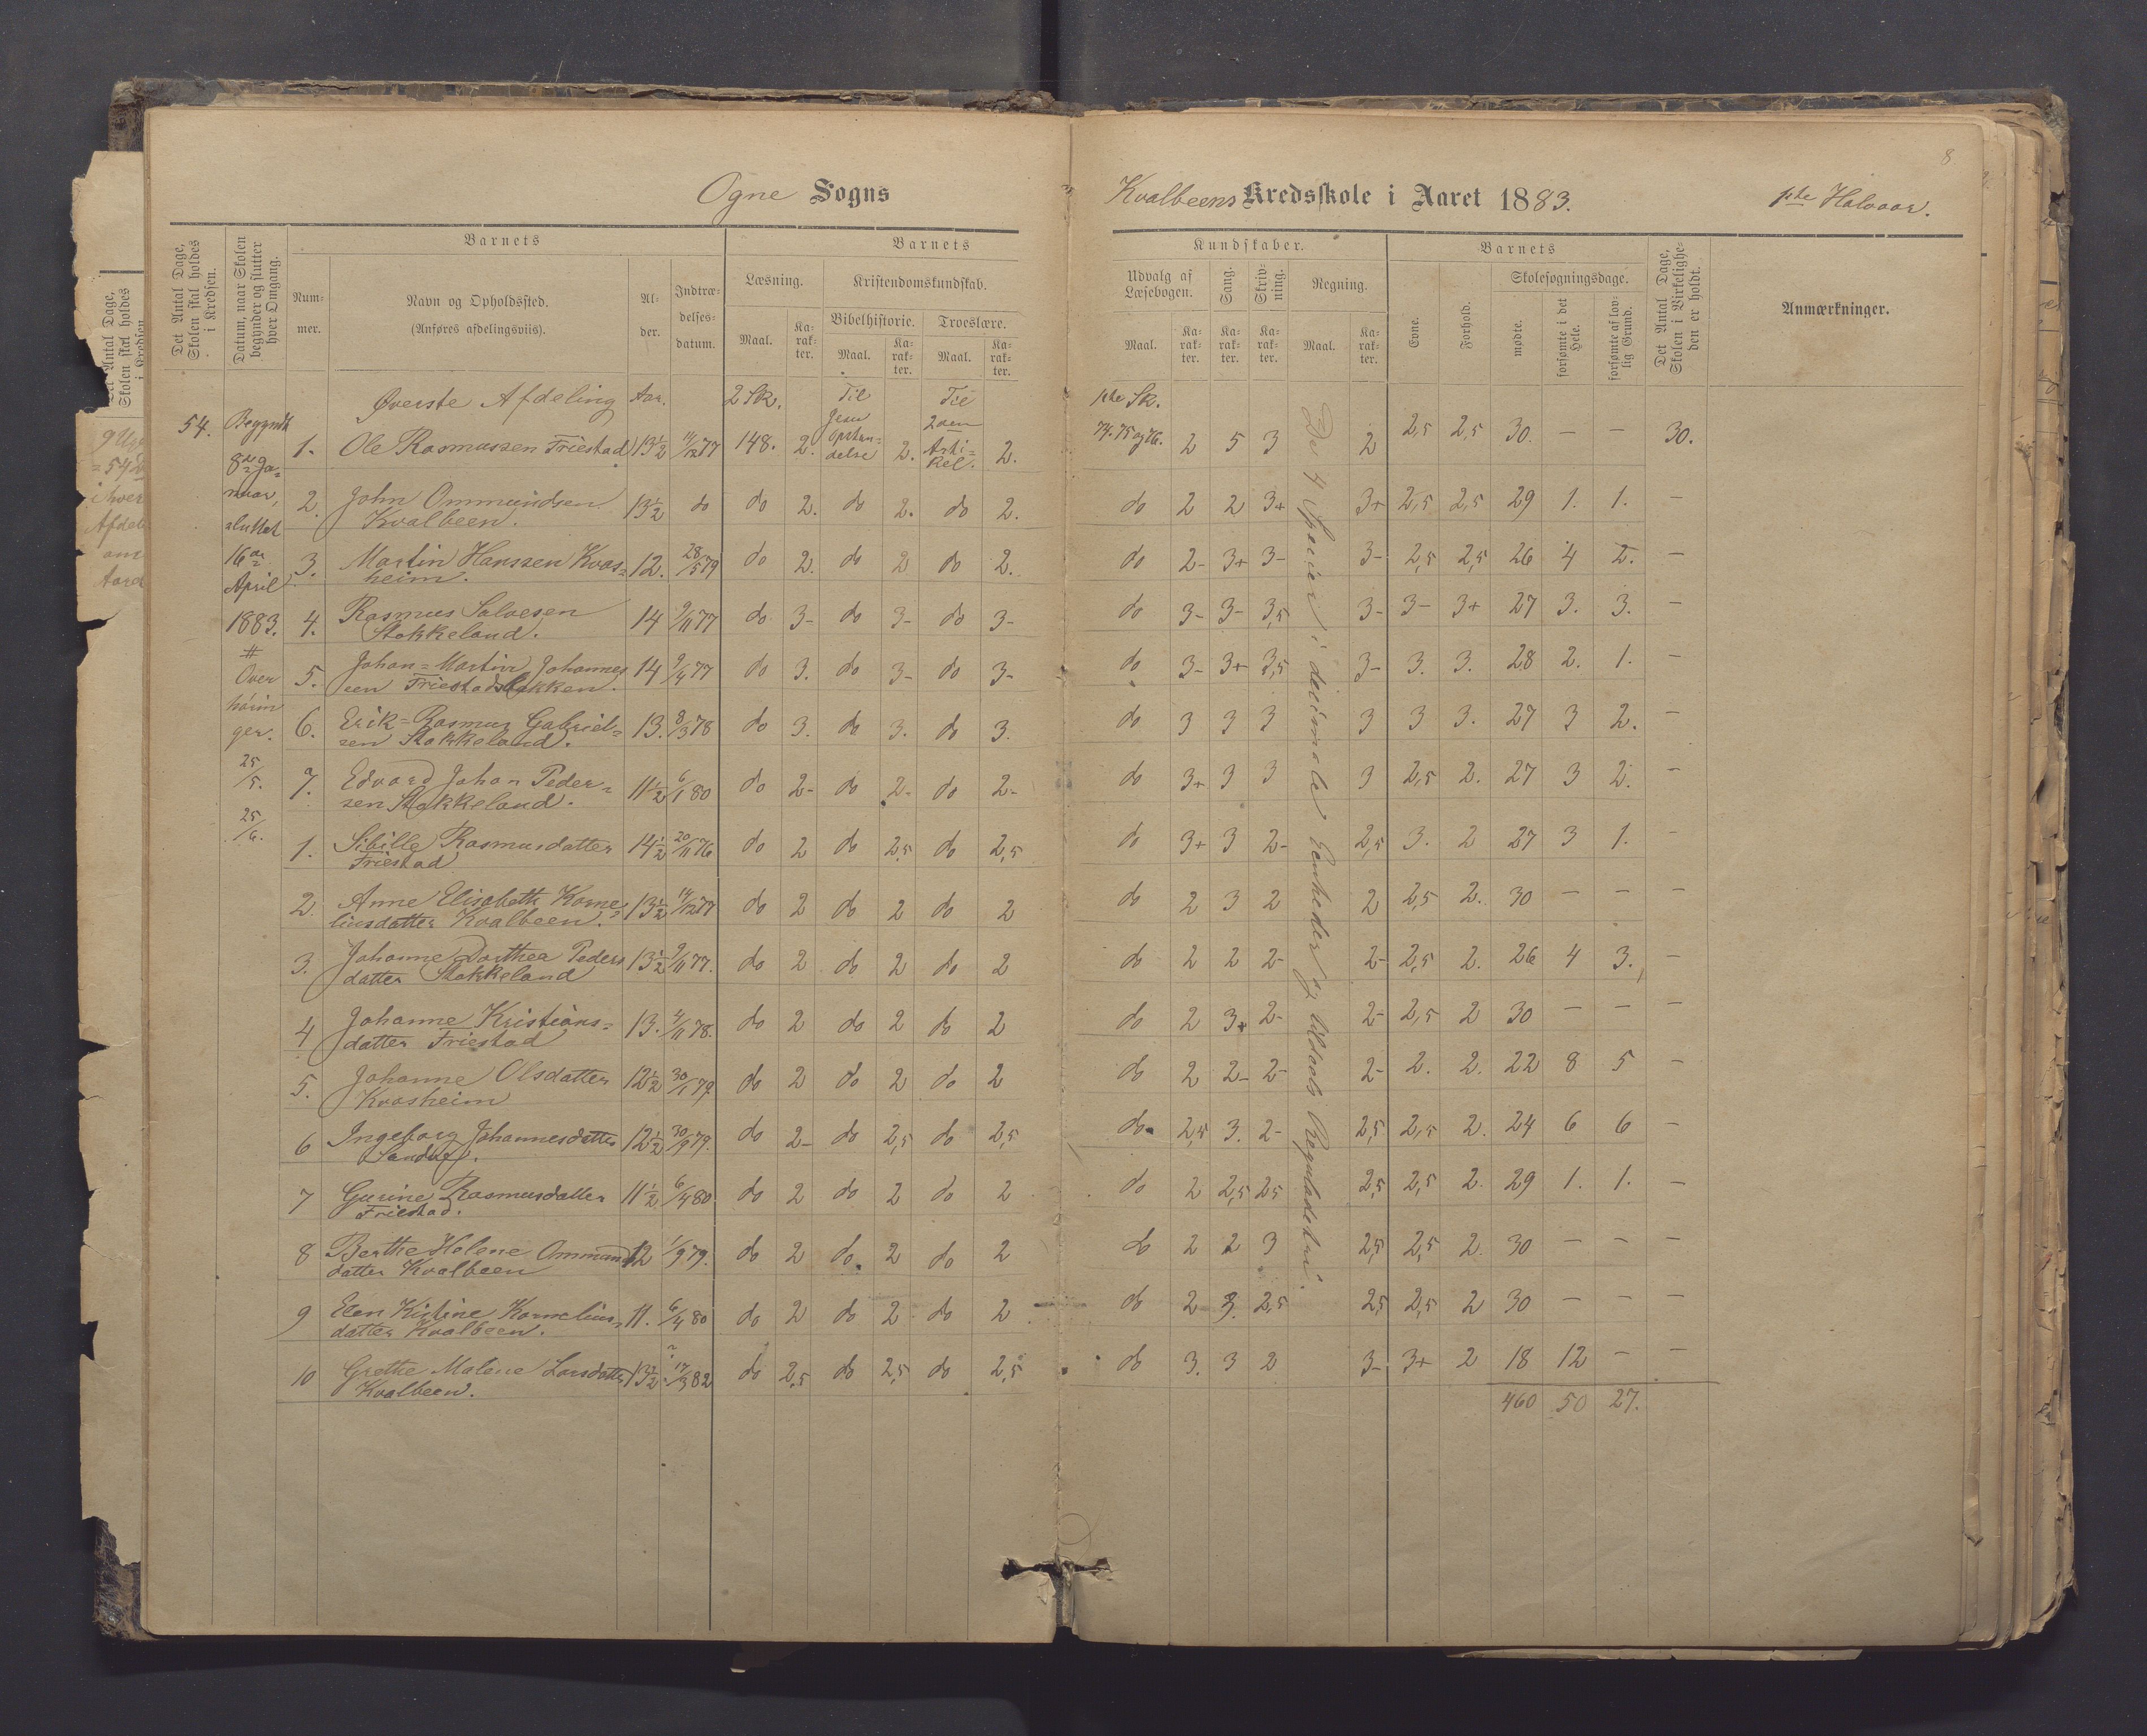 8
Ogne Sogns Kvalbeens Kredsskole i Aaret 1883. 1ste Halvaar.
Det Antal Dage, Skolen skal holdes i Kredsen.
Datum, naar Skolen begynder og slutter hver Omgang.
Barnets
Nummer.
Navn og Opholdssted.
(Anføres afdelingsviis).
Alder.
Indtrædelsesdatum.
Barnets Kundskaber.
Læsning.
Kristendomskundskab.
Bibelhistorie.
Troeslære.
Udvalg af Læsebogen.
Sang.
Skrivning.
Regning.
Maal. Karakter. Maal. Karakter. Maal. Karakter. Maal. Karakter. Karakter. Karakter. Maal. Karakter.
Barnets
Evne.
Forhold.
Skolesøgningsdage.
mødte.
forsømte i det Hele.
forsømte af lovlig Grund.
Det Antal Dage, Skolen i Virkeligheden er holdt.
Anmærkninger.
54.
Begyndt
8de Ja=
nuar,
sluttet
16de
April
1883.
#
Over
hørin
ger.
25/5.
25/6.
Øverste Afdeling Aar. 2 Sk. Til Jesu Opstan=delse Til 2den Arti=kel. 1ste Sk.
De 4 Spesier i decimale Eenheder og tildeels Reguladetri.
1. Ole Rasmussen Friestad 13½ 14/12 77 148. 2. 2. 2. 74. 75 og 76. 2 5 3 2 2,5 2,5 30. — — 30.
2. John Ommundsen
Kvalbeen. 13½ do do 2. do 2. do 2. do 2 2 3+ 3+ 2,5 2,5 29 1. 1. —
3. Martin Hanssen Kvas=
heim. 12. 28/5 79 do 2. do 2 do 2. do 2- 3+ 3- 3- 2,5 2,5 26 4 2. —
4. Rasmus Salvesen
Stokkeland. 14 9/11 77 do 3- do 3- do 3- do 3- 3- 3,5 3- 3- 3+ 27 3. 3. —
5. Johan=Martin Johannes
sen Friestadbakken. 14 9/4 77 do 3. do 3- do 3- do 3- 3+ 3,5 3- 3. 3. 28 2. 1. —
6. Erik=Rasmus Gabriel=
sen Stokkeland. 13. 8/3 78 do 3. do 3. do 3. do 3 3 3 3 3 3. 27 3 2. —
7. Edvard Johan Peder=
sen Stokkeland. 11½ 6/1 80 do 2- do 2- do 2- do 3+ 3 3 3 2,5 2. 27 3 2. —
1. Sibille Rasmusdatter
Friestad 14½ 20/11 76 do 2 do 2,5 do 2,5 do 3+ 3 2- 2,5 3. 2 27 3 1. —
2. Anne Elisabeth Korne
liusdatter Kvalbeen. 13½ 14/12 77 do 2 do 2 do 2 do 2 3 2 2 2,5 2. 30 — — —
3. Johanne Dorthea Peders
datter Stokkeland 13½ 9/11 77. do 2 do 2 do 2 do 2 2 2- 2- 2,5 2. 26 4 3. —
4 Johanne Kristians=
datter Friestad 13. 4/11 78. do 2 do 2 do 2 do 2 3+ 2- 2- 2,5 2 30 — — —
5. Johanne Olsdatter
Kvasheim 12½ 30/1 79 do 2 do 2 do 2 do 2 2- 2- 2- 2. 2. 22 8 5 —
6 Ingeborg Johannesdatter
12½ 30/9 79. do 2- do 2,5 do 2,5 do 2,5 3. 2- 2,5 2,5 2. 24 6 6 —
7 Gurine Rasmusdatter
Friestad. 11½ 6/4 80 do 2 do 2 do 2 do 2 2,5 2,5 2,5 2,5 2. 29 1. 1. —
8 Berthe Helene Ommund
datter Kvalbeen 12 1/9 79. do 2 do 2 do 2 do 2 2 3 2,5 2,5 2. 30 — — —
9 Elen Kistine Kornelius=
datter Kvalbeen. 11. 6/4 80 do 2 do 2 do 2 do 2 3. 2,5 2,5 2,5 2 30 — — —
10 Grethe Malene Larsdatter
Kvalbeen. 13½ 17/3 82 do 2,5 do 2,5 do 2,5 do 3. 3 2 3- 3+ 2 18 12 — —
460 50 27.